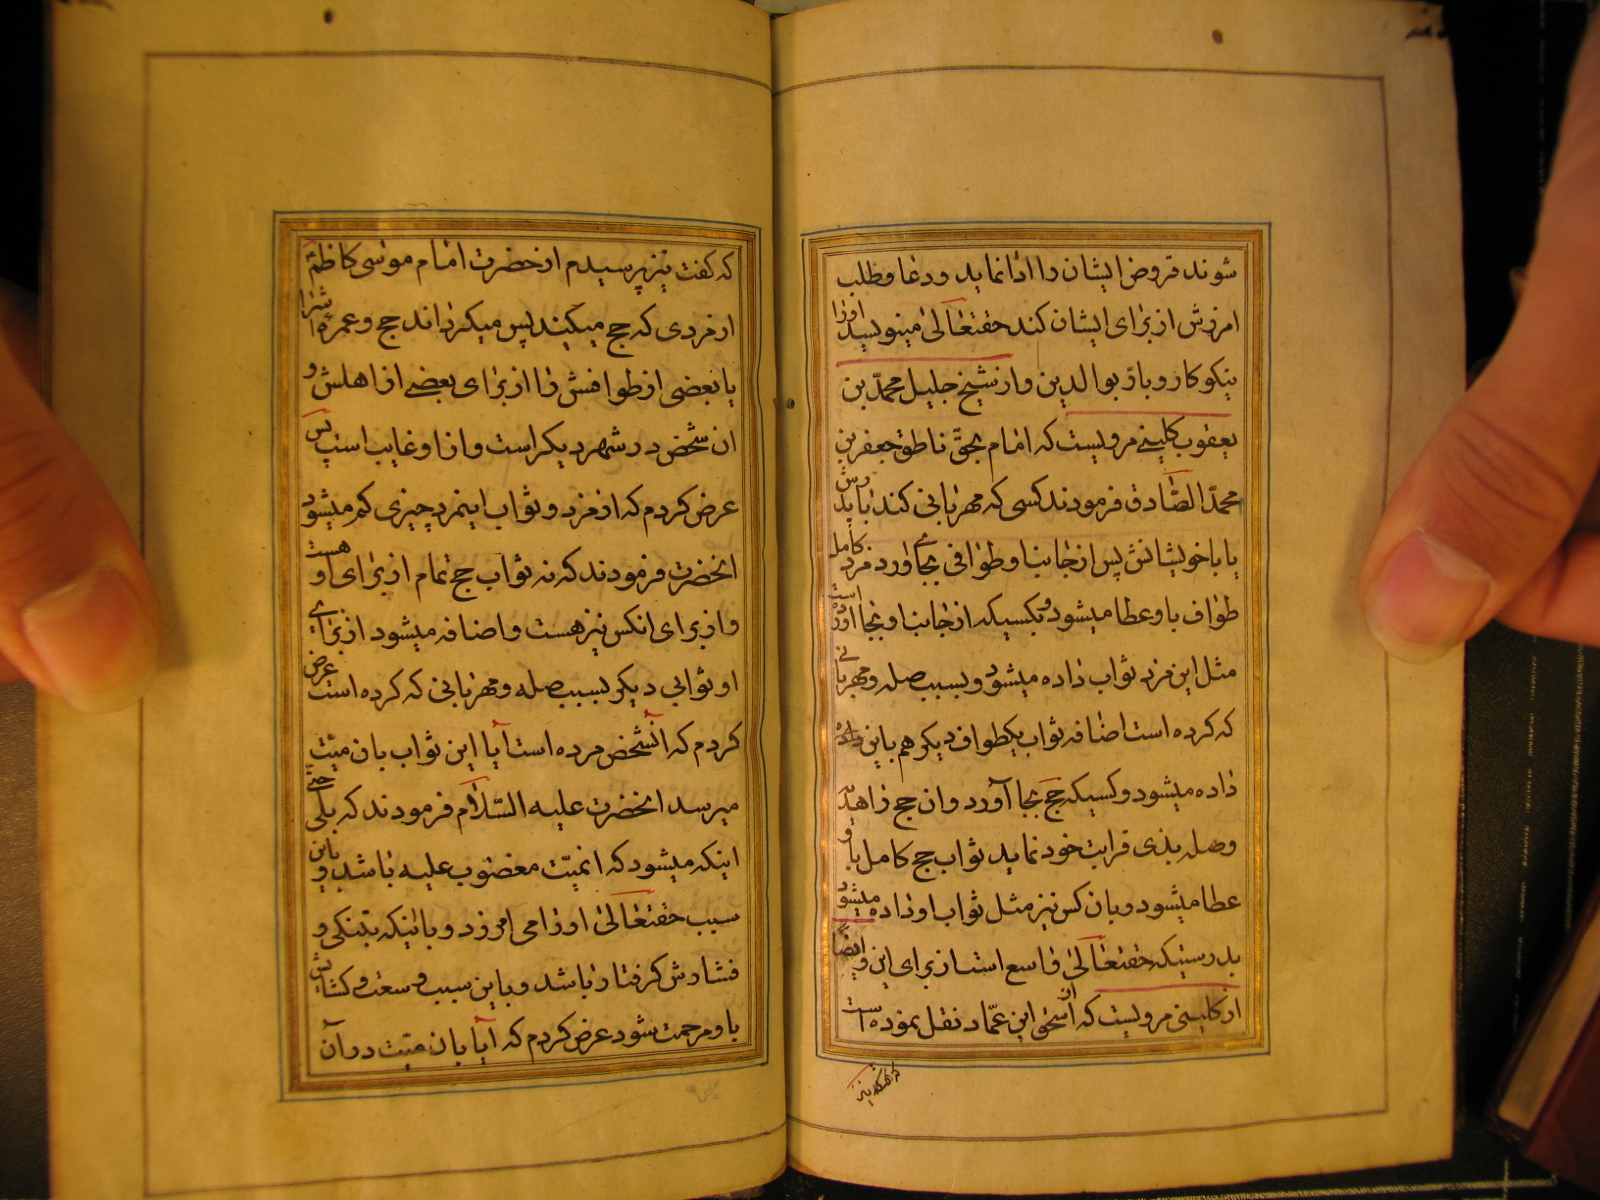 شوند قروض ایشان را ادا نماید و دعا و طلب
امرزش از برای ایشان کند حقتعالی مینویسد اورا
نیکوکار و بارّ بوالدین و از شیخ جلیل محمدّ بن
یعقوب کلینے مرویست که امام بحق ناطق جعفر بن
محمدّ الصّادق فرمودند کسی که مهربانی کند با پدرش
یا با خویشانش پس از جانب او طوافی بجاے اورد مزد کامل
طواف باو عطا میشود و بکسیکه از جانب او بجا اورده است
مثل این مزد ثواب داده میشود و بسبب صله و مهربانے
که کرده است اضافه ثواب یکطواف دیکر هم باین
داده میشود و کسیکه حج بجا آورد و ان حج را هدیه
و صله بذی قرابت خود نماید ثواب حج کامل باو
عطا میشود و بان کس نیز مثل ثواب او داده میشود
بدرستیکه حقتعالی واسع است از برای این و ایضًا
از کلینی مرویست که از اسحق ابن عمّار نقل نموده است
که کفت نیز
که کفت نیز پرسیدم از حضرت امام موسی کاظم
از مردی که حج میکند پس میکرداند حج و عمره اشرا
یا بعضی از طوافش را از برای بعضے از اهلش و
ان شخص در شهر دیکر است و از او غایب است پس
عرض کردم که از مزد و ثواب اینمرد چیزی کم میشود
انحضرت فرمودند که نه ثواب حج تمام از برای او هست
و از برای انکس نیز هست و اضافه میشود از براے
او ثوابی دیکر بسبب صله و مهربانی که کرده است عرض
کردم که آنشخص مرده است آیا این ثواب بان میّت
میرسد انحضرت علیه السّلام فرمودند که بلی حتّی
اینکه میشود که انمیّت مغضوب علیه باشد و باین
سبب حقتعالی اورا می امرزد و باینکه بتنکی و
فشارش کرفتار باشد و باین سبب وسعت و کشایش
باو مرحمت شود عرض کردم که آیا بان میّت در آن